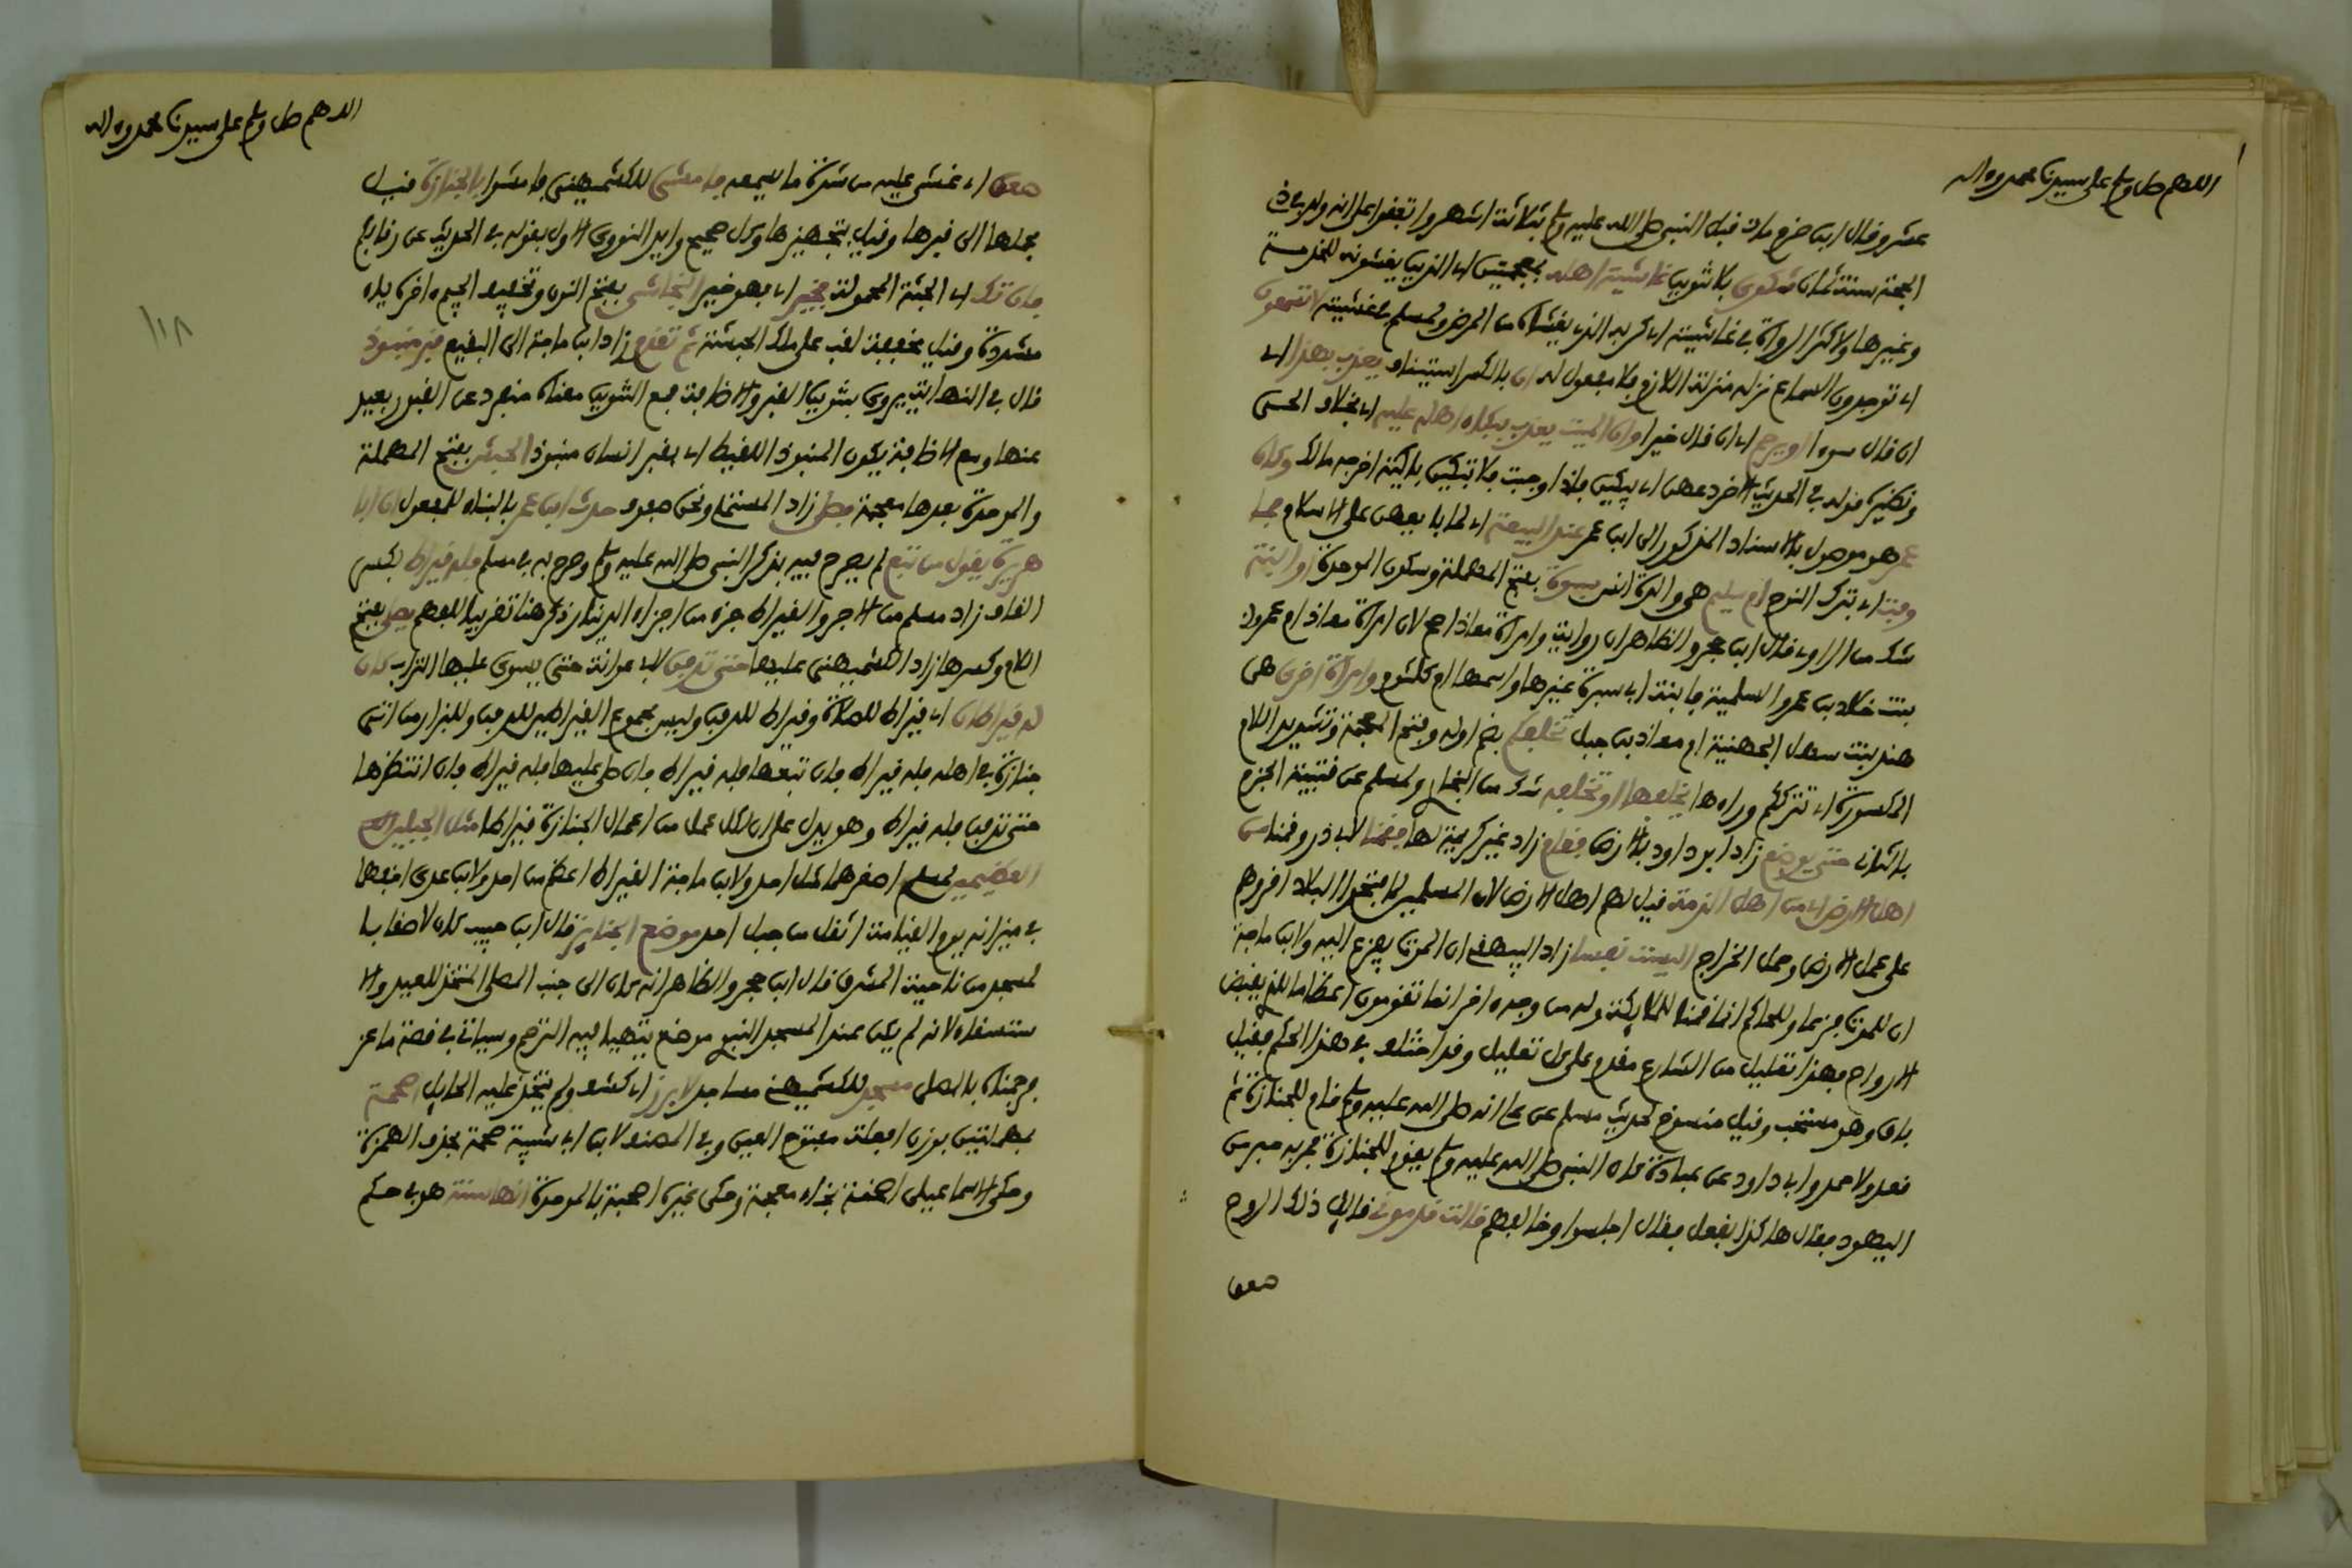 اللهم صل وسلم على سيدنا محمد وءاله
عشر وقال ابن حزم مات قبل النبي صلى الله عليه وسلم بثلاثة اشهر واتفقوا على انه ولد في ذي
الحجة سنة ثمان شكوى بلا تنوين غاشية اهله بمعجمتين اي الذين يغشونه للخدمة
وغيرها ولاكثر الرواة في غاشية اي كربه الذي يغشاه من المرض ولمسلم في غشية الا تسمعون
اي توجدون السماع نزله منزلة اللازم فلا مفعول له ان بالكسر استيناف يعذب بهذا اي
ان قال سوءا او يرحم اي ان قال خيرا وان الميت يعذب ببكاء اهله عليه اي بخلاف الحي
ونظيره قوله في الحديث الاخر دعهن اي يبكين فاذا وجبت فلا تبكين باكية اخرجه مالك وكان
عمر هو موصول بالاسناد المذكور الى ابن عمر عند البيعة اي لما بايعهن على الاسلام فما
وفت اي بترك النوح ام سليم هي والدة انس سبرة بفتح المهملة وسكون الموحدة او ابنة
شك من الراوي قال ابن حجر والظاهر ان رواية وامراة معاذ اصح لان امراة معاذ ام عمرو
بنت خلاد بن عمرو السلمية فابنة ابي سبرة غيرها واسمها ام كلثوم وامراة اخرى هي
هند بنت سهل الجهنية ام معاذ بن جبل تخلفكم بضم اوله وفتح المعجمة وتشديد اللام
المكسورة اي تترككم وراءها يخلفها او تخلفه شك من البخاري ولمسلم عن قتيبة الجزم
بالثاني حتى توضع زاد ابو داود بالارض فقام زاد غير كريمة لها فقمنا لابي ذر وقمنا من
اهل الارض اي من اهل الذمة قيل لهم اهل الارض لان المسلمين لما فتحوا البلاد اقروهم
على عمل الارض وحمل الخراج اليست نفسا زاد البيهقي ان الموت يفزع اليه ولابن ماجة
ان للموت فزعا وللحاكم انما قمنا للملائكة وله من وجه ءاخر انما تقومون اعظاما للذي يقبض
الارواح فهذا تعليل من الشارع مقدم على كل تعليل وقد اختلف في هذا الحكم فقيل
باق وهو مستحب وقيل منسوخ لحديث مسلم عن علي انه صلى الله عليه وسلم قام للجنازة ثم
قعد ولاحمد وابي داود عن عبادة كان النبي صلى الله عليه وسلم يقوم للجنازة فمر به حبر من
اليهود فقال هاكذا نفعل فقال اجلسوا وخالفوهم قالت قدموني قائل ذلك الروح
صعق
اللهم صل وسلم على سيدنا محمد وءاله
١١٨
صعق اي غشي عليه من شدة ما يسمعه فامشي للكشميهني فامشوا بالجنازة قيل
بحملها الى قبرها وقيل بتجهيزها وكل صحيح وايد النووي الاول بقوله في الحديث عن رقابكم
فان تك اي الجثة المحمولة فخير اي فهو خير النجاشي بفتح النون وتخفيف الجيم ءاخره ياء
مشددة وقيل مخففة لقب على ملك الحبشة ثم تقدم زاد ابن ماجة الى البقيع قبر منبوذ
قال في النهاية يروى بتنوين القبر والاضافة فمع التنوين معناه منفرد عن القبور بعيد
عنها ومع الاضافة يكون المنبوذ اللقيط اي بقبر انسان منبوذ الحبش بفتح المهملة
والموحدة بعدها معجمة فصلى زاد المستملي ونحن صفوف حدث ابن عمر بالبناء للمفعول ان ابا
هريرة يقول من تبع لم يصرح فيه بذكر النبي صلى الله عليه وسلم وصرح به في مسلم فله قيراط بكسر
القاف زاد مسلم من الاجر والقيراط جزء من اجزاء الدينار ذكر هنا تقريبا للفهم يصلى بفتح
اللام وكسرها زاد الكشميهني عليها حتى تدفن لابي عوانة حتى يسوى عليها التراب كان
له قيراطان اي قيراط للصلاة وقيراط للدفن وليس مجموع القيراطين للدفن وللبزار من اتى
جنازة في اهله فله قيراط فان تبعها فله قيراط فان صلى عليها فله قيراط فان انتظرها
حتى تدفن فله قيراط وهو يدل على ان لكل عمل من اعمال الجنازة قيراطا مثل الجبلين
العظيمين لمسلم اصغرهما مثل احد ولابن ماجة القيراط اعظم من احد ولابن عدي اثقلها
في ميزانه يوم القيامة اثقل من جبل احد موضع الجنايز قال ابن حبيب كان لاصقا با
لمسجد من ناحية المشرق قال ابن حجر والظاهر انه كان الى جنب المصلى المتخذ للعيد والا
ستسقاء لانه لم يكن عند المسجد النبوي موضع يتهيا فيه الرجم وسياتي في قصة ماعز
فرجمناه بالمصلى مسجد للكشميهني مساجد لابرز اي كشف ولم يتخذ عليه الحايل اصحمة
بمهملتين بوزن افعلة مفتوح العين وفي المصنف لابن ابي شيبة صحمة بحذف الهمزة
وحكى الاسماعيلي اصخمة بخاء معجمة وحكى غيره اصحبة بالموحدة انها سنة هو في حكم